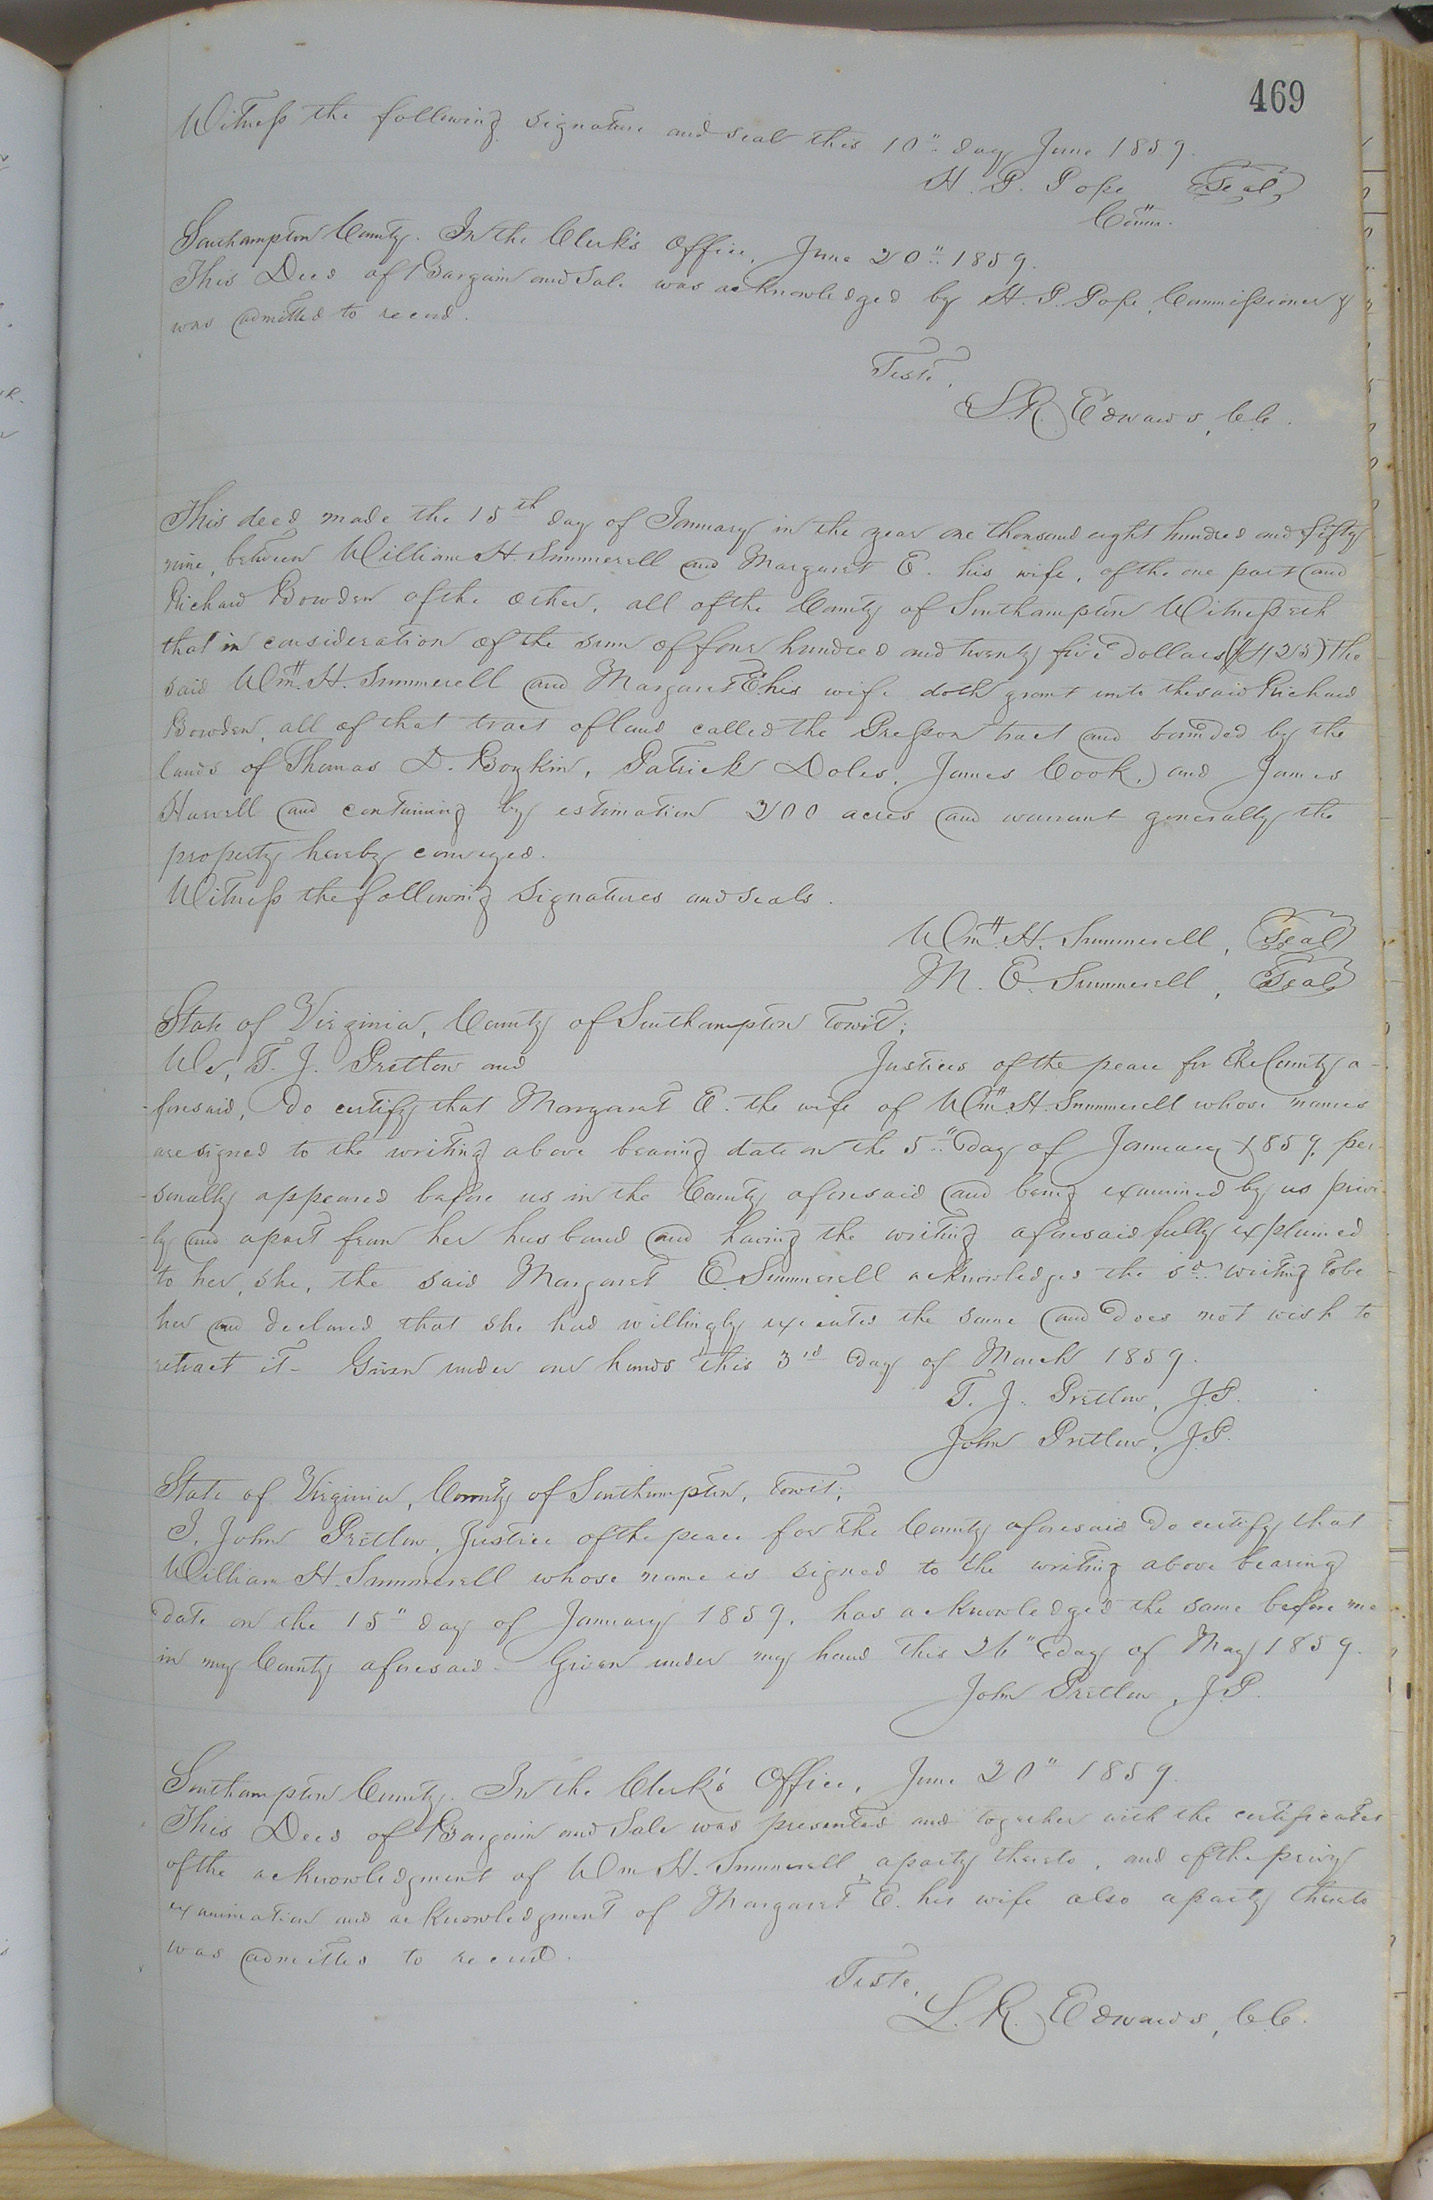 469
Witness the following signature and seal this 10" day June 1859.
H. P. Pope Seal
Comr.
Southampton County. In the Clerk's Office, June 20" 1859.
This Deed of Bargain and Sale was acknowledged by H. P. Pope, Commissioner &
was admitted to record.
Teste,
L. R. Edwards, C.C.
This deed made the 15th day of January in the year one thousand eight hundred and fifty
nine, between William H. Summerell and Margaret E. his wife, of the one part and
Richard Bowden of the other, all of the County of Southampton Witnesseth
that in consideration of the sum of four hundred and twenty five dollars ($425) the
said Wm. H. Summerell and Margaret E. his wife doth grant unto the said Richard
Bowden, all of that tract of land called the Presson tract and bounded by the
lands of Thomas D. Boykin, Patrick Doles, James Cook, and James
Harrell and containing by estimation 200 acres and warrant generally the
property hereby conveyed.
Witness the following signatures and seals.
Wm. H. Summerell, Seal
M. E. Summerell, Seal
State of Virginia, County of Southampton towit;
We, T. J. Pretlow and Justices of the peace for the County a-
-foresaid, do certify that Margaret E. the wife of Wm. H. Summerell whose names
are signed to the writing above bearing date on the 5" day of January 1859, per-
-sonally appeared before us in the County aforesaid and being examined by us privi-
-ly and apart from her husband and having the writing aforesaid fully explained
to her, she, the said Margaret E. Summerell acknowledges the sd. writing to be
her and declared that she had willingly executed the same and does not wish to
retract it - Given under our hands this 3rd day of March 1859.
T. J. Pretlow, J.P.
John Pretlow, J.P.
State of Virginia, County of Southampton, towit;
I, John Pretlow, Justice of the peace for the County aforesaid do certify that
William H. Summerell whose name is signed to the writing above bearing
date on the 15" day of January 1859, has acknowledged the same before me
in my County aforesaid - Given under my hand this 26" day of May 1859.
John Pretlow, J.P.
Southampton County. In the Clerk's Office, June 20" 1859.
This Deed of Bargain and Sale was presented and together with the certificates
of the acknowledgment of Wm H. Summerell a party thereto, and of the privy
examination and acknowledgment of Margaret E. his wife also a party thereto
was admitted to record.
Teste,
L. R. Edwards, C.C.